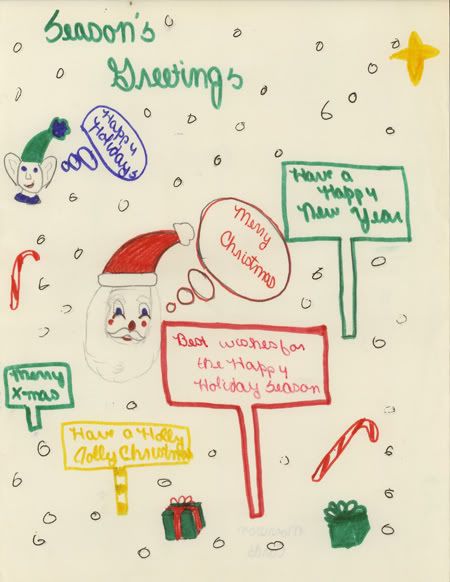 Season's
Greetings
Happy
Holidays
Have a
Happy
New Year
Merry
Christmas
Best wishes for
the Happy
Holiday Season
Merry
X-mas
Have a Holly
Jolly Christmas